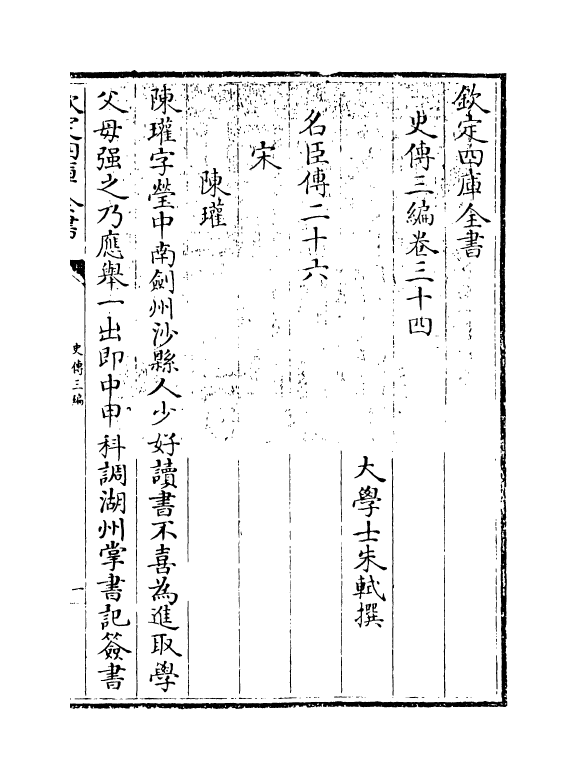 欽定四庫全書
史傳三編卷三十四
大學士朱軾撰
名臣傳二十六
宋
陳瓘
陳瓘字瑩中南劍州沙縣人少好讀書不喜為進取學
父母强之乃應舉一出即中甲科調湖州掌書記簽書
欽定四庫全書
史傳三編
一